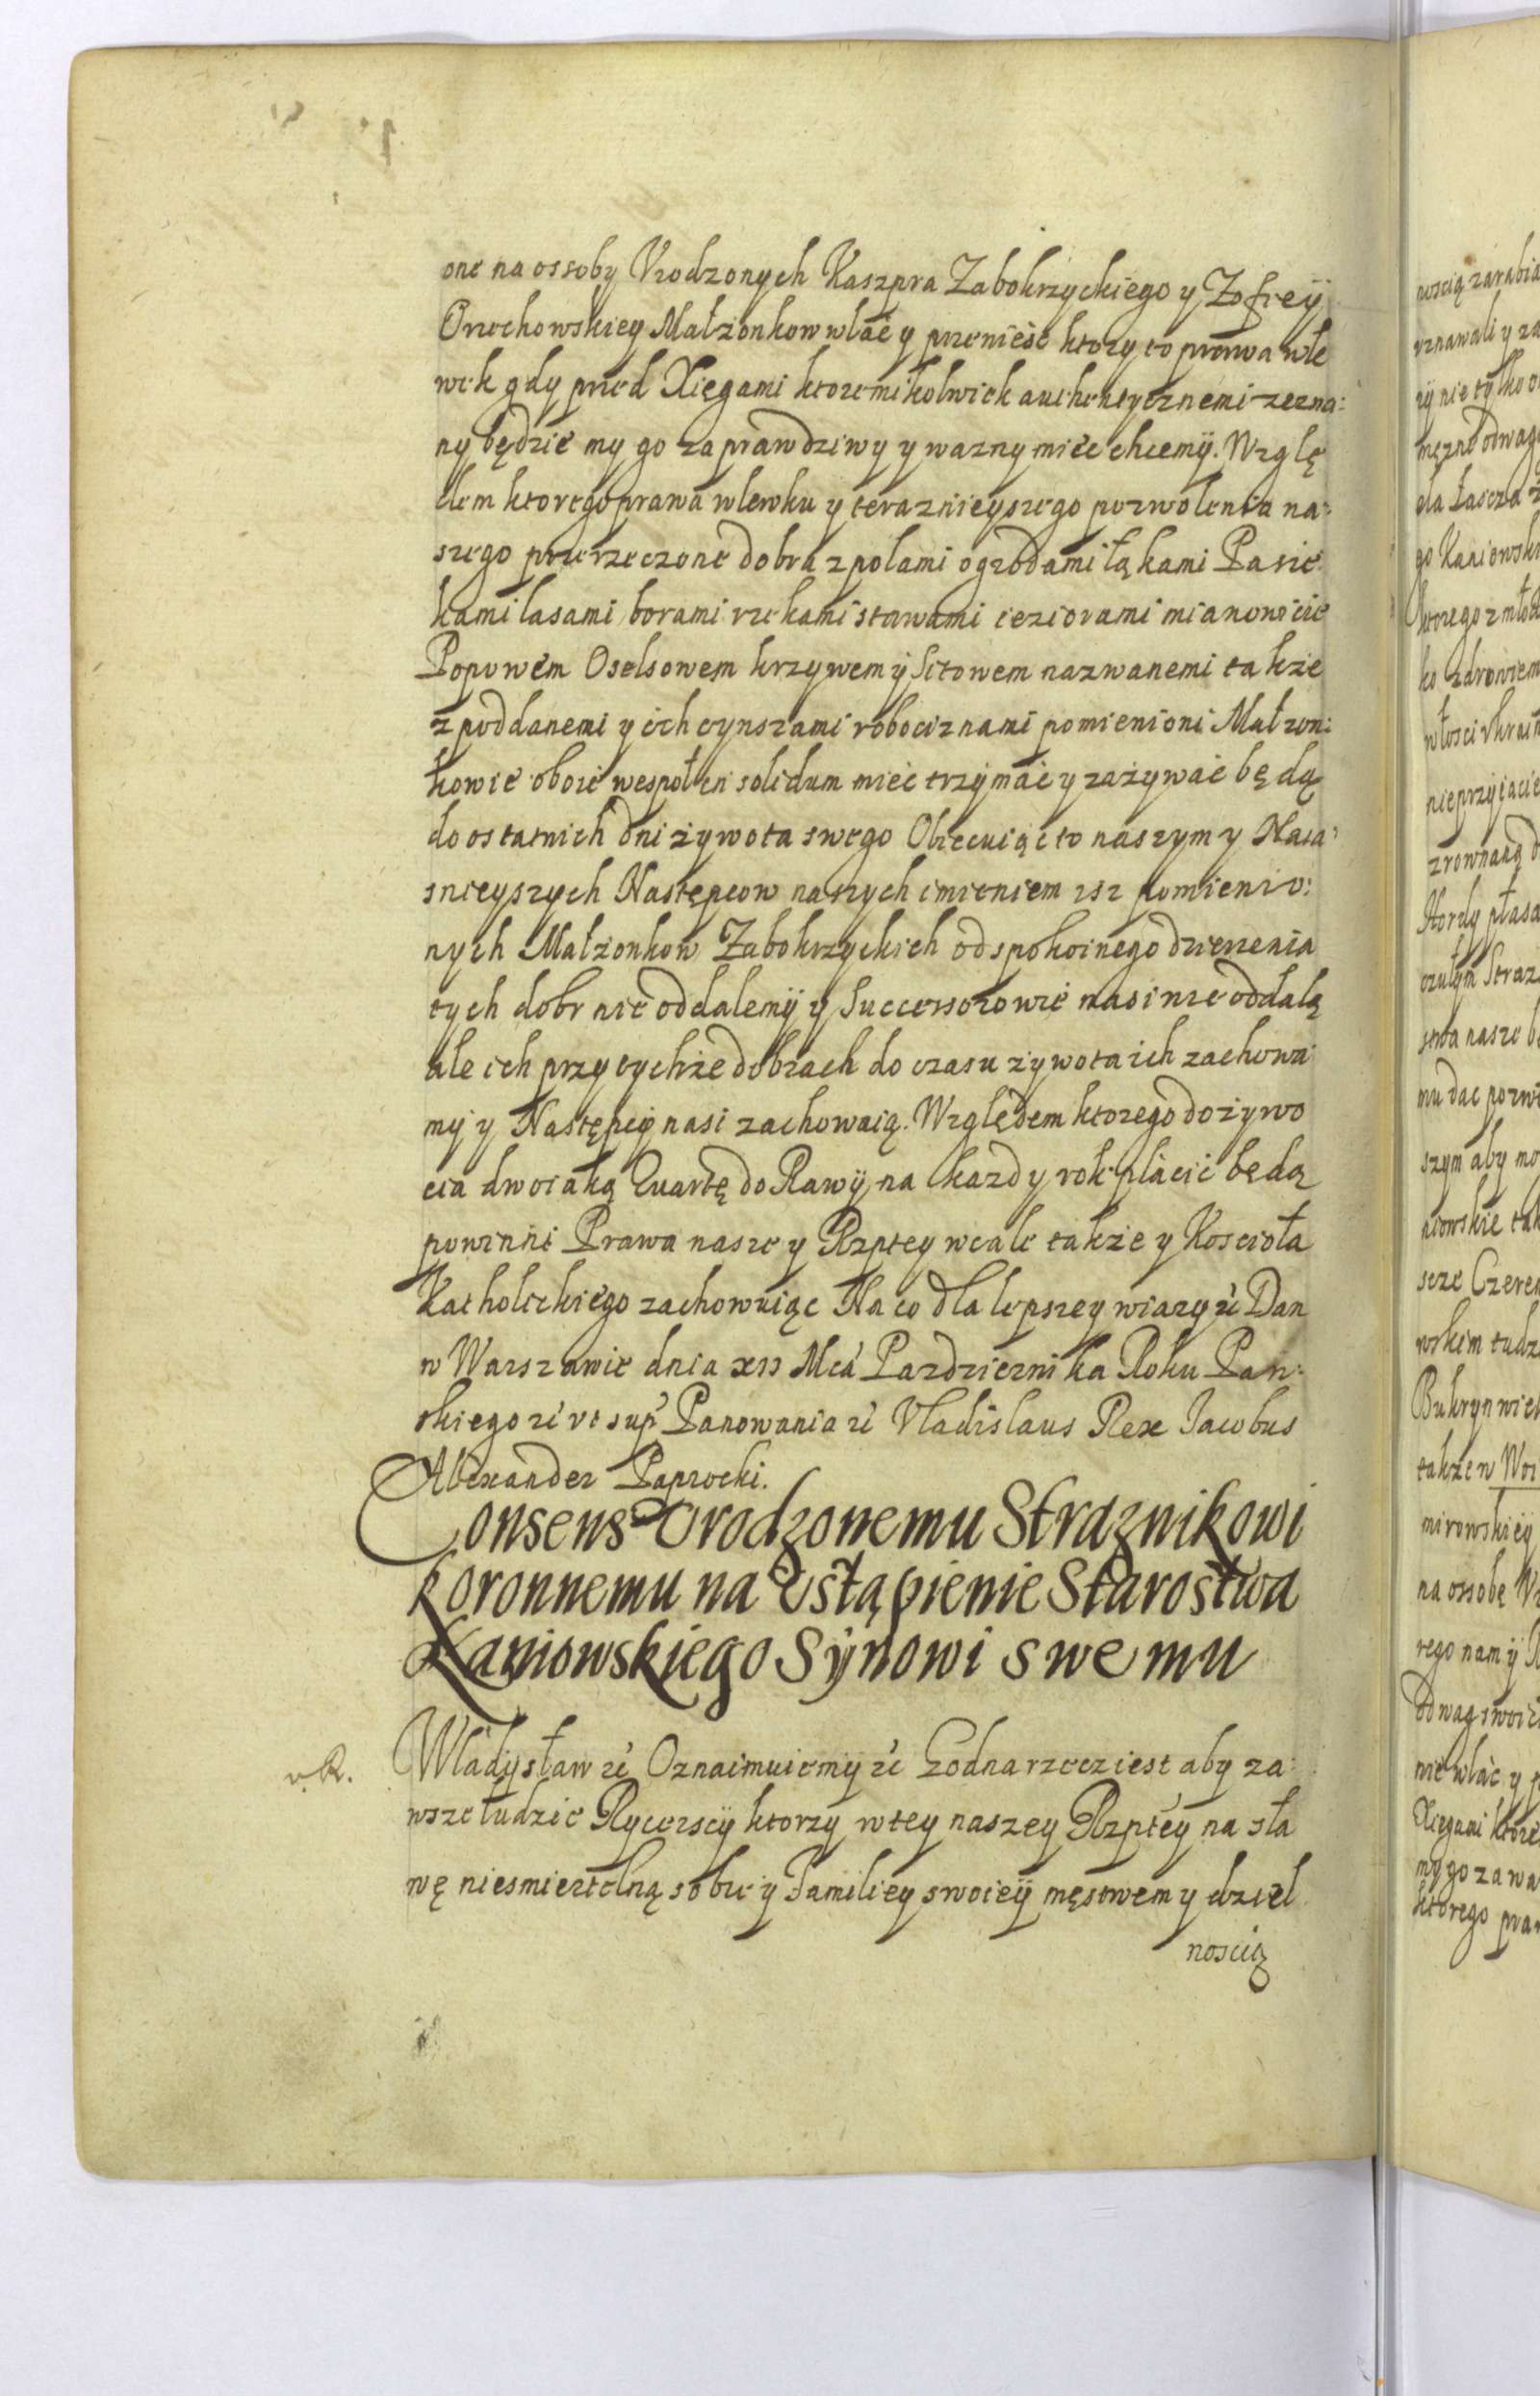 one na ossoby Vrodzonych Kaszpra Zabokrzyckiego y Zofiey
Orzechowskiey Małzonkow wlać y przenieść ktory to prawa wle
wek gdy przed Xięgami ktoremikolwiek authentycznemi zezna:
ny będzie my go za prawdziwy y wazny mieć chcemy. Wzglę
dem ktorego prawa wlewku y teraznieyszego pozwolenia na:
szego przerzeczone dobra z polami ogrodami łąkami Pasie
kami lasami borami rzekami stawami ieziorami mianowicie
Popowem Oselsowem krzywem y Sitowem nazwanemi także
z poddanemi y ich cynszami robociznami pomienioni Małzon:
kowie oboie wespoł in solidum mieć trzymać y zażywać będą
do ostatnich dni żywota swego Obiecuiąc to naszym y Naia:
snieyszych Następcow naszych imieniem isz pomienio:
nych Małżonkow Zabokrzyckich od spokoinego dzierzenia
tych dobr nie oddalemy y Successorowie nasi nie oddalą
ale ich przy tychże dobrach do czasu zywota ich zachowa
my y Następcy nasi zachowaią. Względem ktorego dożywo
cia dwoiaką Quartę do Rawy na każdy rok płacić będą
powinni Prawa nasze y Rzptey wcale także y Kościoła
Katholickiego zachowuiąc Na co dla lepszey wiary zć Dan
w Warszawie dnia XII Mca Pazdziernika Roku Pan:
skiego zć vt sup Panowania zć Vladislaus Rex Jacobus
Alexander Paprocki.
Consens Urodzonemu Straznikowi
koronnemu na Ustąpienie Starostwa
Kaniowskiego Synowi swemu
v. R.
Władysław zć Oznaimuiemy zć Godna rzecz iest aby za:
wsze ludzie Rycerscy ktorzy w tey naszey Rzptey na sła
wę niesmiertelną sobie y Familiey swoiey męstwem y dziel
noscią